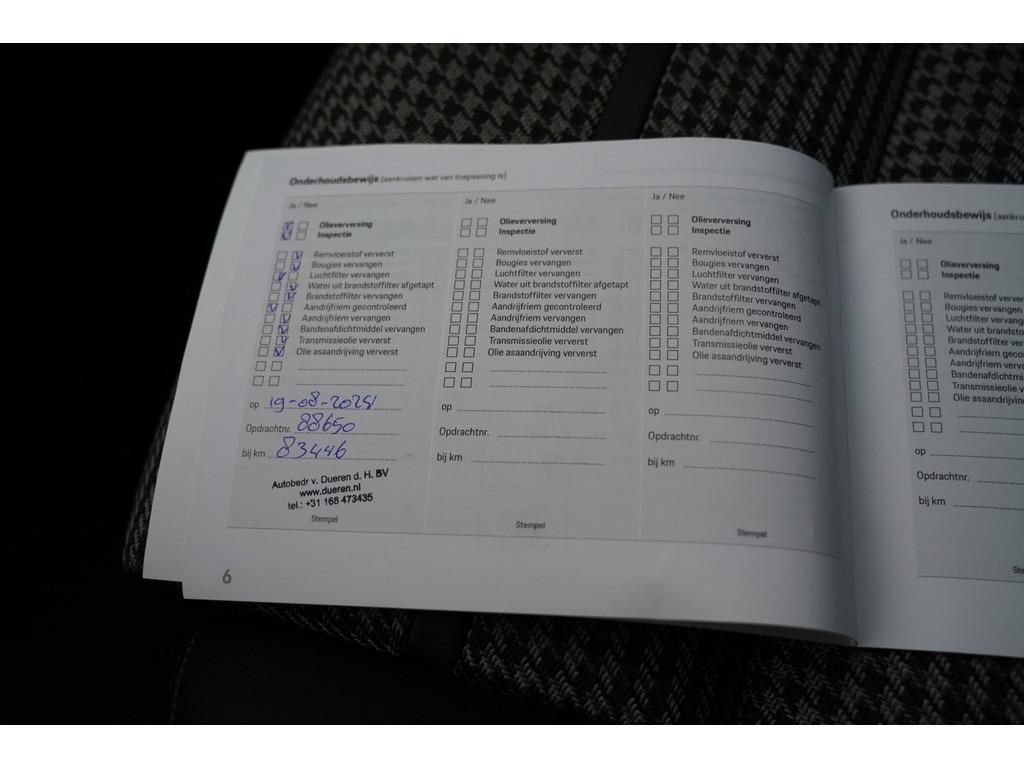 Onderhoudsbewijs (aankruisen wat van toepassing is)
Ja / Nee
Olieverversing
Inspectie
Remvloeistof ververst
Bougies vervangen
Luchtfilter vervangen
Water uit brandstoffilter afgetapt
Brandstoffilter vervangen
Aandrijfriem gecontroleerd
Aandrijfriem vervangen
Bandenafdichtmiddel vervangen
Transmissieolie ververst
Olie asaandrijving ververst
op 19-08-2024
Opdrachtnr. 88650
bij km 83446
Autobedr v. Dueren d. H. BV
www.dueren.nl
tel.: +31 168 473435
Stempel
6
Ja / Nee
Olieverversing
Inspectie
Remvloeistof ververst
Bougies vervangen
Luchtfilter vervangen
Water uit brandstoffilter afgetapt
Brandstoffilter vervangen
Aandrijfriem gecontroleerd
Aandrijfriem vervangen
Bandenafdichtmiddel vervangen
Transmissieolie ververst
Olie asaandrijving ververst
op
Opdrachtnr.
bij km
Stempel
Ja / Nee
Olieverversing
Inspectie
Remvloeistof ververst
Bougies vervangen
Luchtfilter vervangen
Water uit brandstoffilter afgetapt
Brandstoffilter vervangen
Aandrijfriem gecontroleerd
Aandrijfriem vervangen
Bandenafdichtmiddel vervangen
Transmissieolie ververst
Olie asaandrijving ververst
op
Opdrachtnr.
bij km
Stempel
Onderhoudsbewijs (aankru
Ja / Nee
Olieverversing
Inspectie
Remvloeistof verver
Bougies vervangen
Luchtfilter vervange
Water uit brandsto
Brandstoffilter ver
Aandrijfriem geco
Aandrijfriem verva
Bandenafdichtmi
Transmissieolie v
Olie asaandrijvin
op
Opdrachtnr.
bij km
Ste